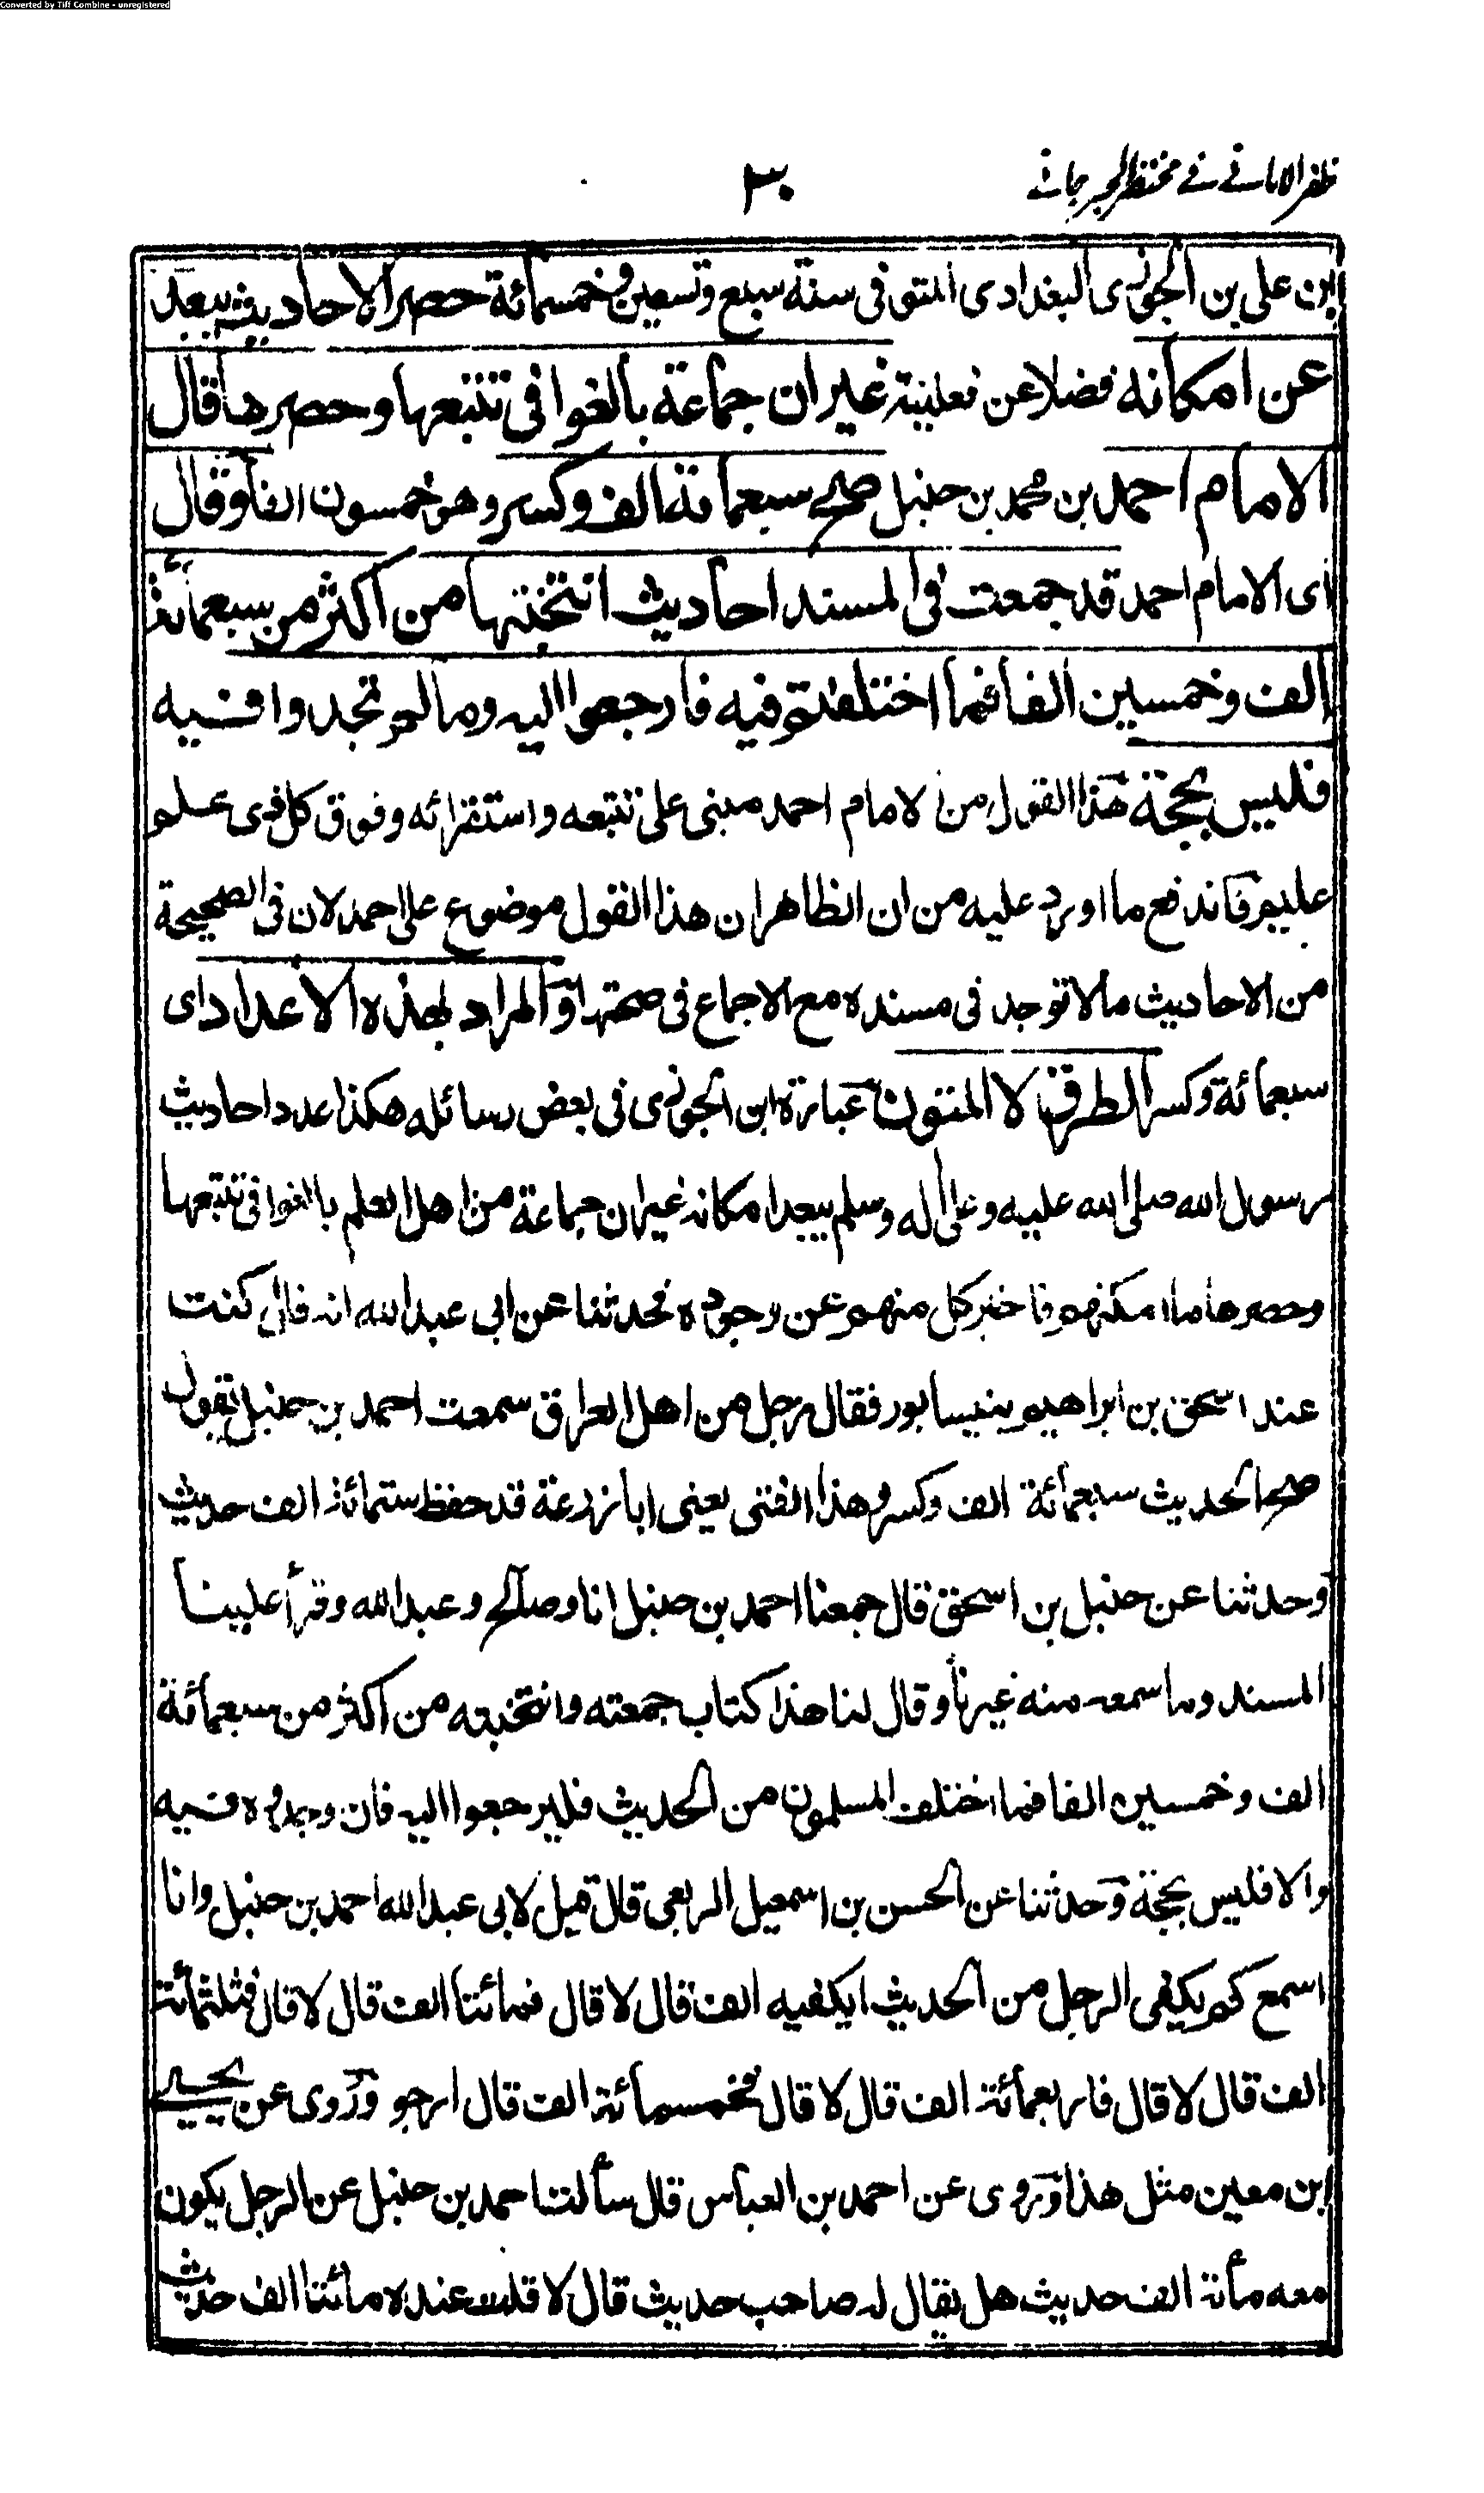 Converted by Tiff Combine - unregistered
ظفر الامانى فى مختصر الجرجانى
٣٠
ابن على بن الجوزى البغدادى المتوفى سنة سبع وتسعين وخمسمائة حصر الاحاديث يبعد
عن امكانه فضلا عن فعليته غير ان جماعة بالغوا فى تتبعها وحصرها قال
الامام احمد بن محمد بن حنبل صح سبعمائة الف وكسر وهو خمسون الفا وقال
اى الامام احمد قد جمعت فى المسند احاديث انتخبتها من اكثر من سبعمائة
الف وخمسين الفا فما اختلفتم فيه فارجعوا اليه وما لم تجدوا فيه
فليس بحجة هذا القول من الامام احمد مبنى على تتبعه واستقرائه وفوق كل ذى علم
عليم فاندفع ما اورد عليه من ان الظاهر ان هذا القول موضوع على احمد لان فى الصحيحة
من الاحاديث ما لا توجد فى مسنده مع الاجماع فى صحتها والمراد بهذه الاعداد اى
سبعمائة وكسر الطرق لا المتون عبارة ابن الجوزى فى بعض رسائله هكذا عدد احاديث
رسول الله صلى الله عليه وعلى اله وسلم يبعد امكانه غير ان جماعة من اهل العلم بالغوا فى تتبعها
وحصرها ما امكنهم فاخبر كل منهم عن وجوده فحدثنا عن ابى عبد الله انه قال كنت
عند اسحق بن ابراهيم بنيسابور فقال رجل من اهل العراق سمعت احمد بن حنبل يقول
صح الحديث سبعمائة الف وكسر وهذا الفتى يعنى ابا زرعة قد حفظ ستمائة الف حديث
وحدثنا عن حنبل بن اسحق قال جمعنا احمد بن حنبل انا وصالح وعبد الله وقرأ علينا
المسند وما سمعه منه غيرنا وقال لنا هذا كتاب جمعته وانتخبته من اكثر من سبعمائة
الف وخمسين الفا فما اختلف المسلمون من الحديث فليرجعوا اليه فان وجدوه فيه
والا فليس بحجة وحدثنا عن الحسن بن اسمعيل الربعى قال قيل لابى عبد الله احمد بن حنبل وانا
اسمع كم يكفى الرجل من الحديث ايكفيه الف قال لا قال فمائتا الف قال لا قال فثلثمائة
الف قال لا قال فاربعمائة الف قال لا قال فخمسمائة الف قال ارجو وروى عن يحيى
ابن معين مثل هذا وروى عن احمد بن العباس قال سألت احمد بن حنبل عن الرجل يكون
معه مأة الف حديث هل يقال له صاحب حديث قال لا قلت عنده مائتا الف حديث